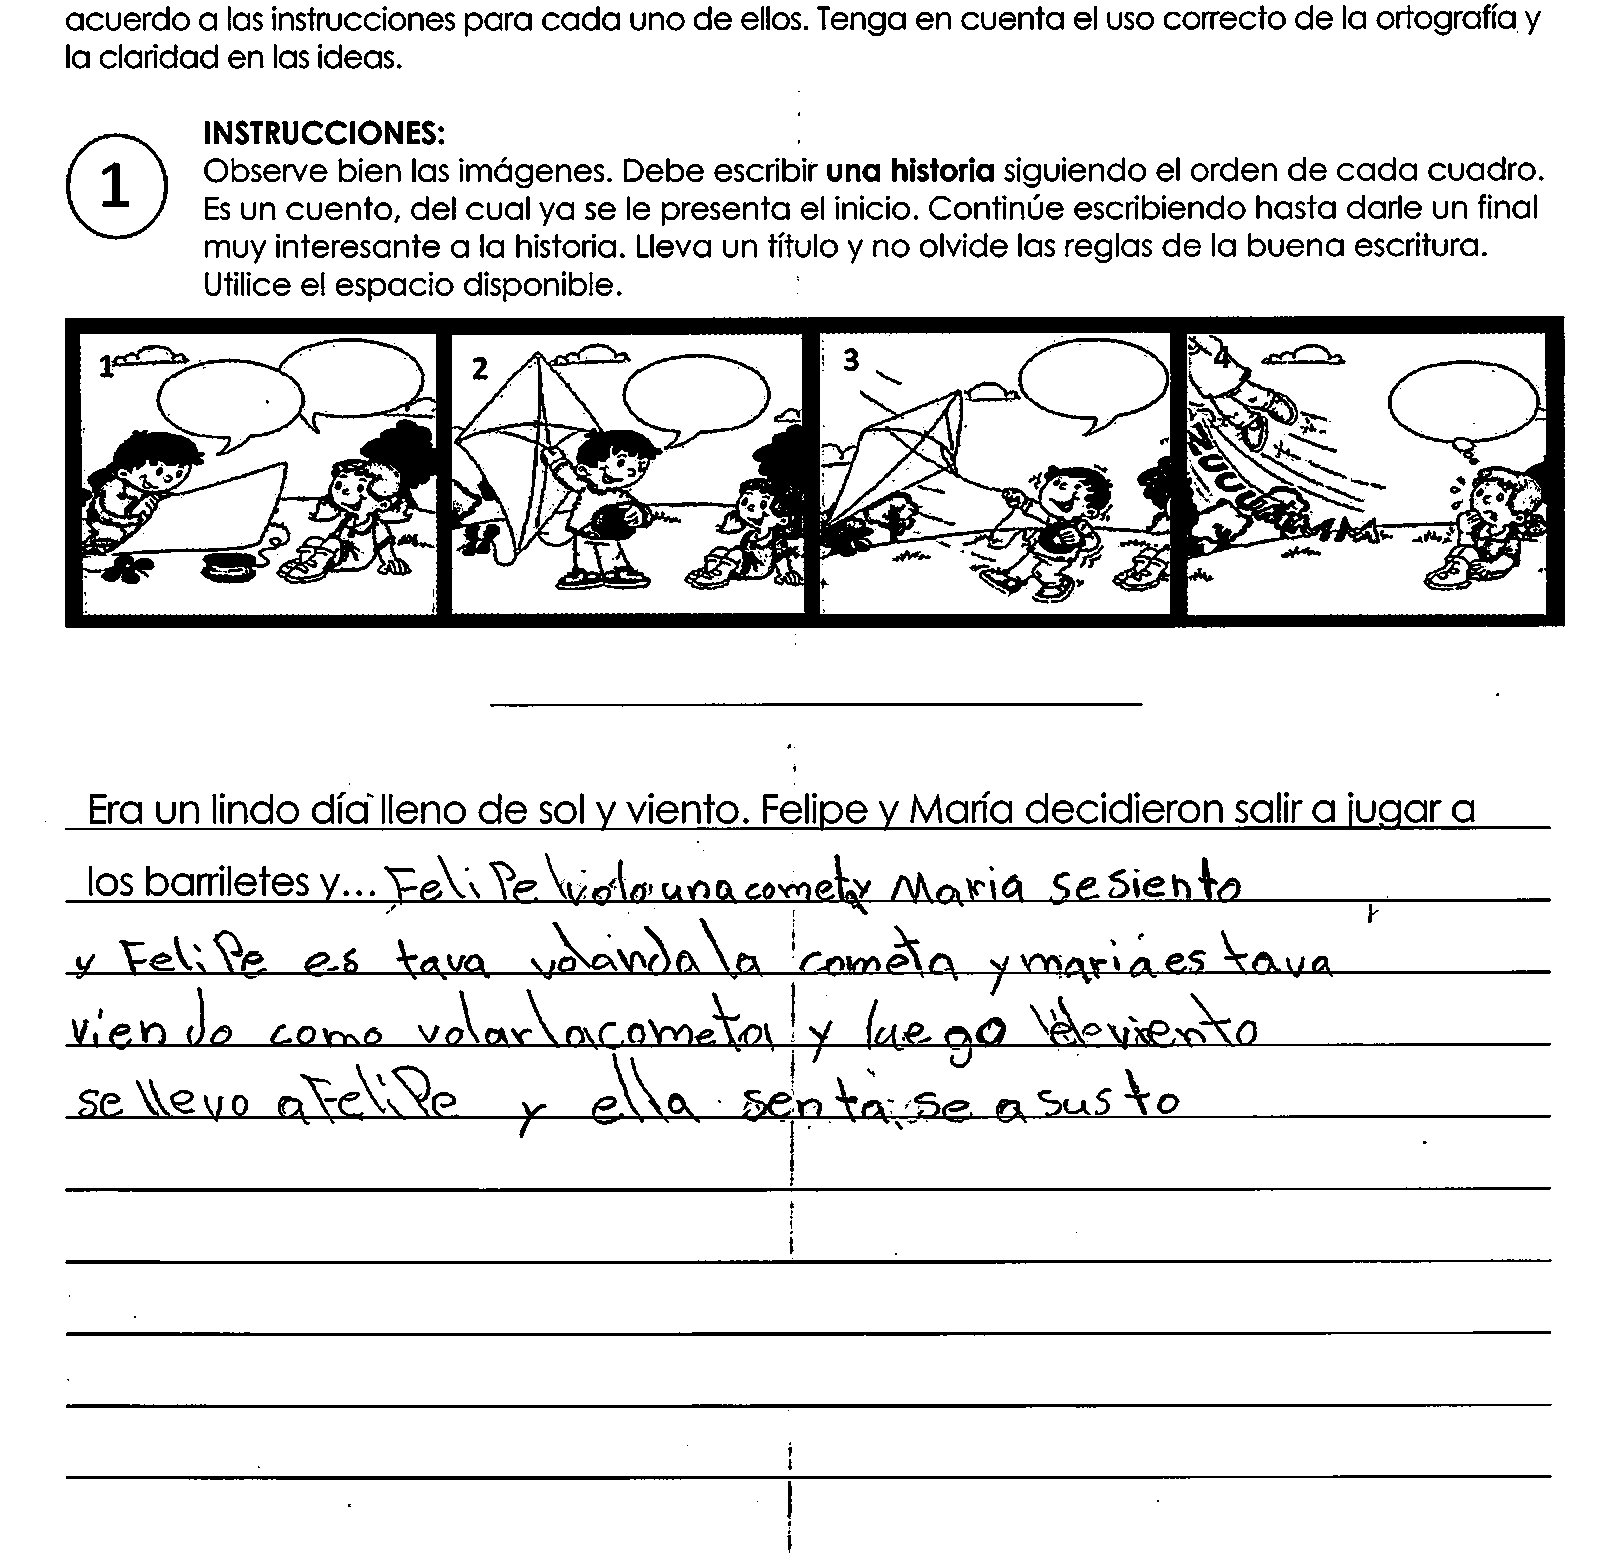 acuerdo a las instrucciones para cada uno de ellos. Tenga en cuenta el uso correcto de la ortografía y
la claridad en las ideas.
1
INSTRUCCIONES:
Observe bien las imágenes. Debe escribir una historia siguiendo el orden de cada cuadro.
Es un cuento, del cual ya se le presenta el inicio. Continúe escribiendo hasta darle un final
muy interesante a la historia. Lleva un título y no olvide las reglas de la buena escritura.
Utilice el espacio disponible.
1 2 3 4
Era un lindo día lleno de sol y viento. Felipe y María decidieron salir a jugar a
los barriletes y... Felipe una cometa y Maria se siento
y Felipe es tava volando la cometa y maria es tava
viendo como volar la cometa y luego viento
se llevo a Felipe y ella senta se asusto